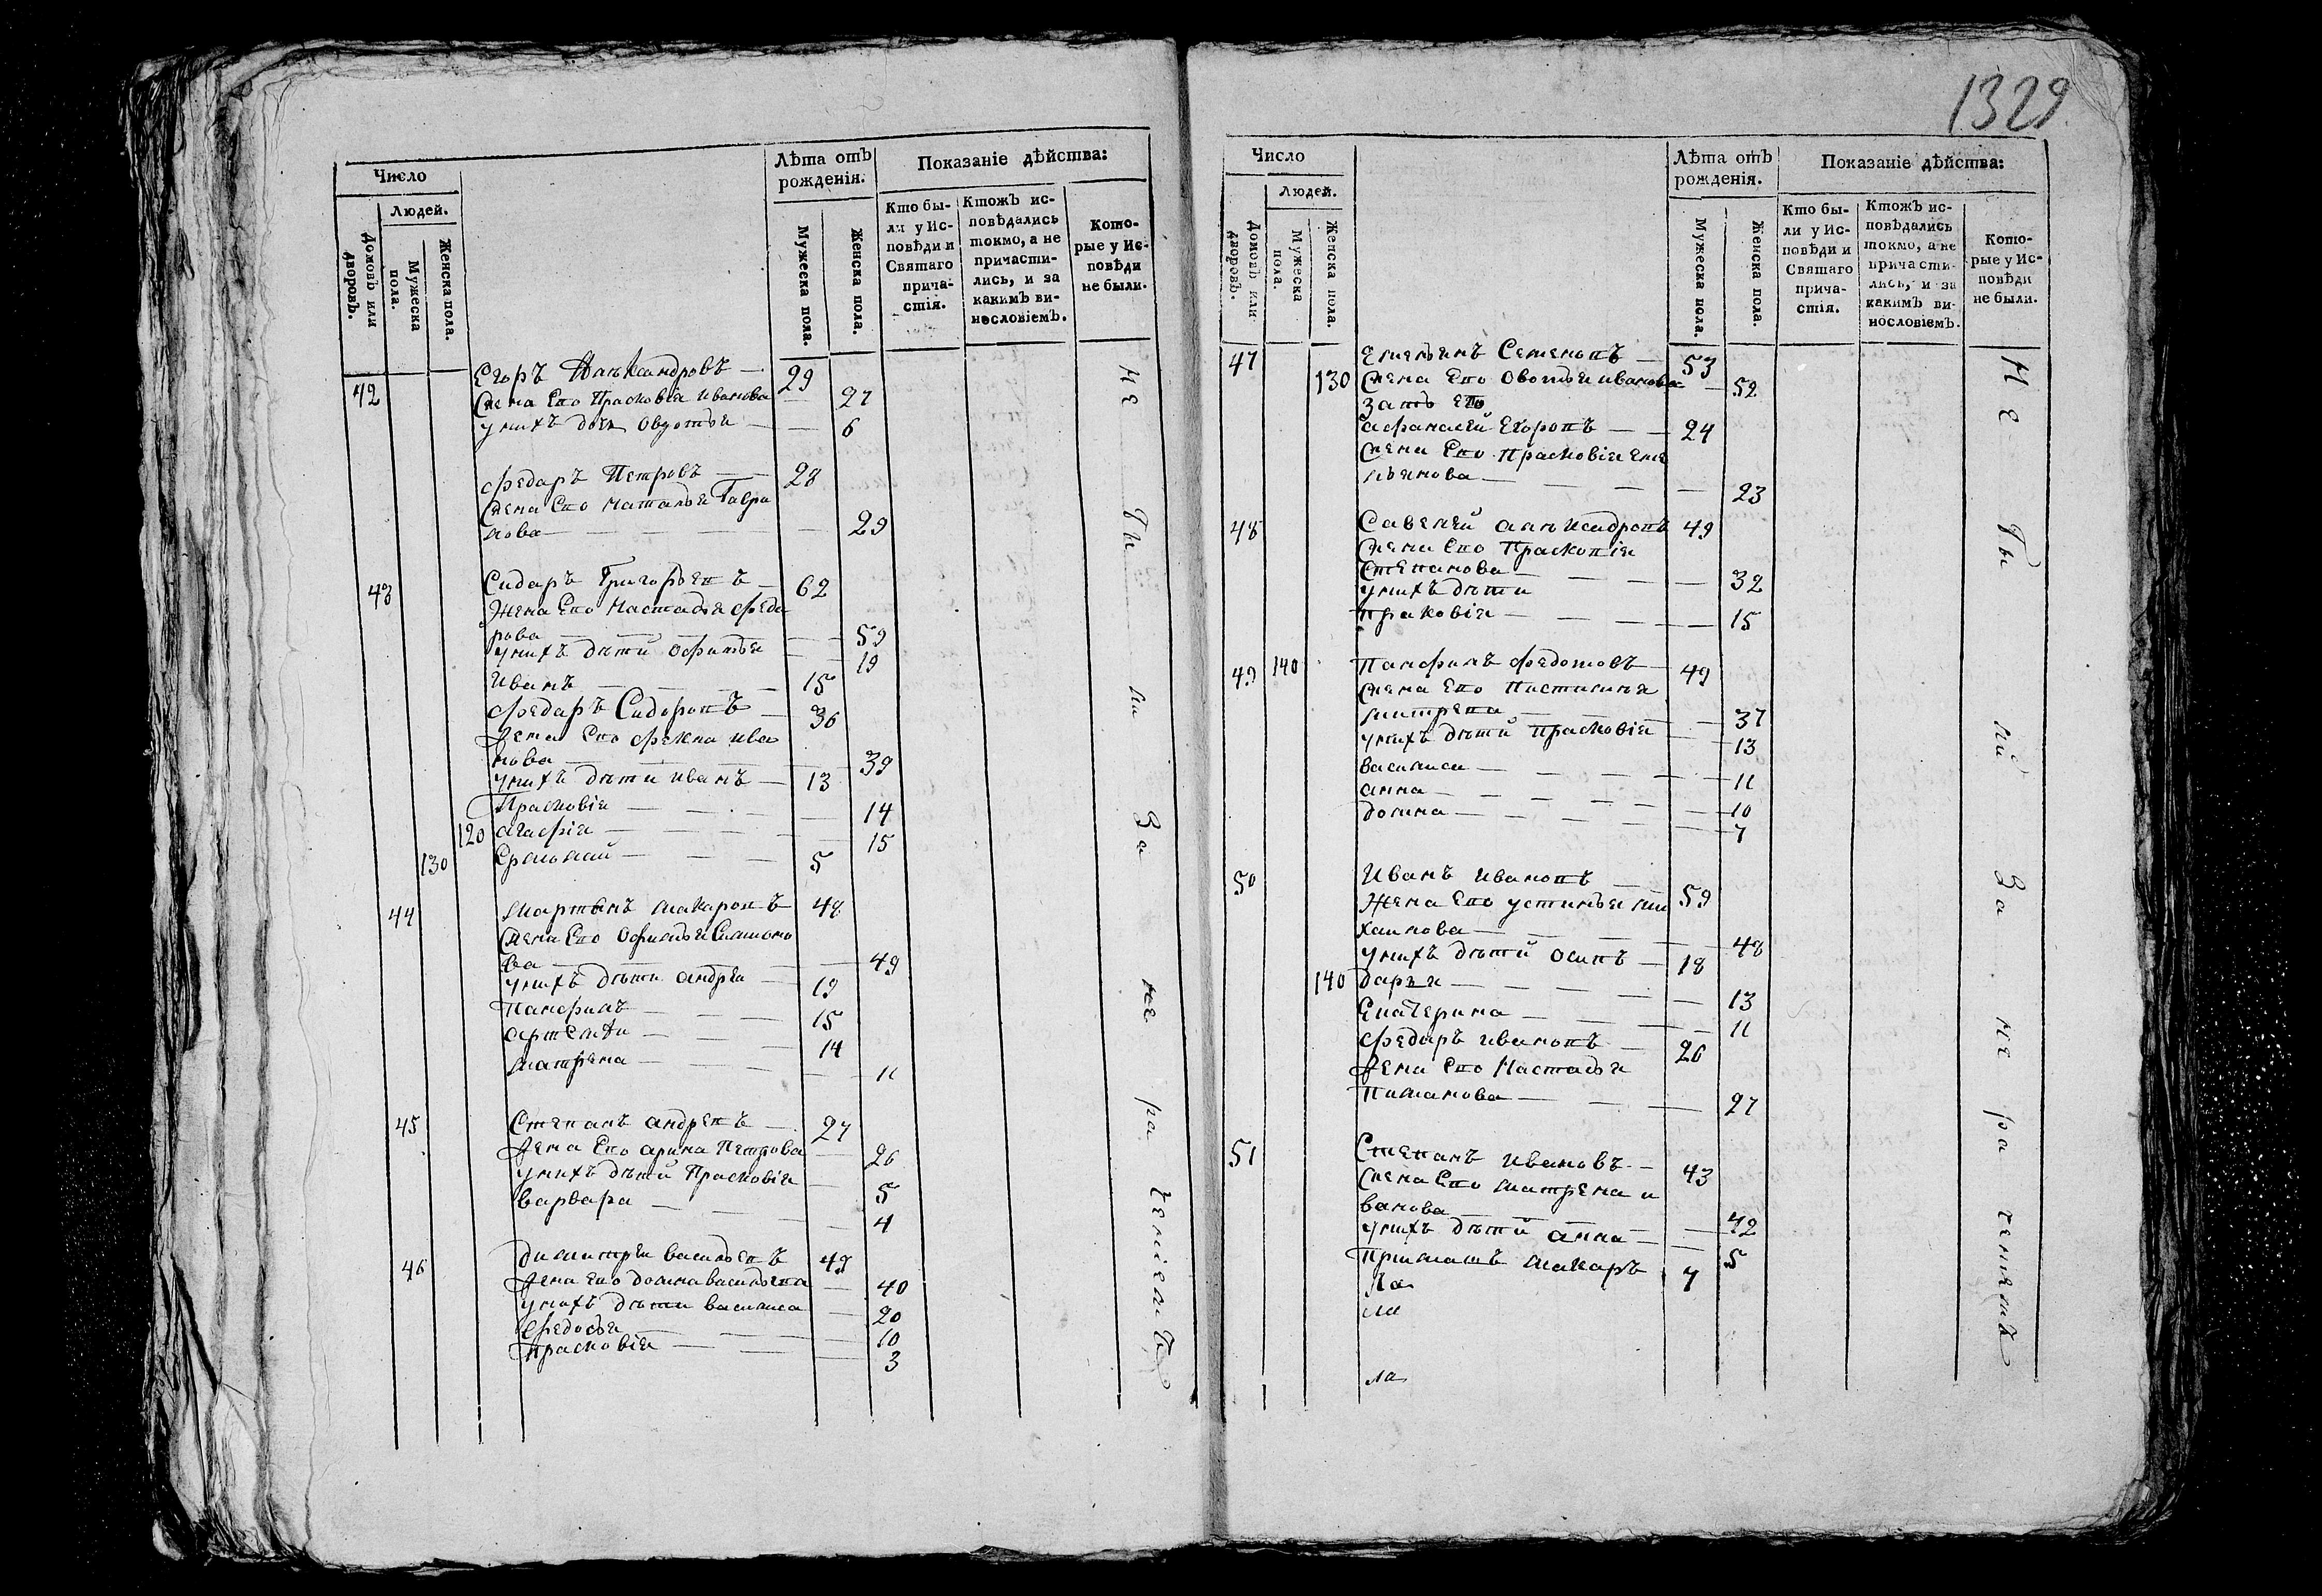 1329
Число
Лѣта отъ рожденія.
Показаніе дѣйства:
Людей.
Домовъ или дворовъ.
Мужеска пола.
Женска пола.
Мужеска пола.
Женска пола.
Кто бы-
ли у Ис-
повѣди и
Святаго
прича-
стія.
Ктожъ ис-
повѣдались
токмо, а не
причасти-
лись, и за
какимъ ви-
нословіемъ.
Кото-
рые у Ис-
повѣди
не были.
42 Егоръ Алѣксандровъ 29
жена Его Прасковія Иванова 27
у нихъ дочь Овдотья 6
Федаръ Петровъ 28
жена Его Наталья Гаври
лова 29
43 Сидаръ Григорьевъ 62
Жена Его Настасья Феда
рова 59
у нихъ дѣти Офимья 19
Иванъ 15
Федаръ Сидоровъ 36
жена Его Фекла Ива
нова 39
у нихъ дѣти Иванъ 13
Прасковія 14
120 Агафія 15
130 Ермолай 5
44 Мартынъ Макаровъ 48
жена Его Офимья Симионо
ва 49
у нихъ дѣти Андрей 19
Панфилъ 15
Артемѣй 14
Матрена 11
45 Степанъ Андревъ 27
жена Его Арина Петрова 26
у нихъ дѣтй Прасковія 5
Варвара 4
46 Димитрей Васильевъ 49
жена его Домна Васильева 40
у нихъ дѣти Василиса 20
Федосья 10
Прасковія 3
Число
Лѣта отъ рожденія.
Показаніе дѣйства:
Людей.
Домовъ или дворовъ.
Мужеска пола.
Женска пола.
Мужеска пола.
Женска пола.
Кто бы-
ли у Ис-
повѣди и
Святаго
прича-
стія.
Ктожъ ис-
повѣдались
токмо, а не
причасти-
лись, и за
какимъ ви-
нословіемъ.
Кото-
рые у Ис-
повѣди
не были.
47 Емельянъ Семеновъ 53
130 жена Его Овотья Иванова 52
Зать Его
Афанасей Егоровъ 24
жена Его Прасковія Еме
льянова 23
48 Савелей Алѣксадровъ 49
жена Его Прасковія
Степанова 32
у нихъ дѣти
Праковія 15
49 140 Панфилъ Федотовъ 49
жена Его Пистимья
Митрева 37
у нихъ дѣтй Прасковія 13
Василиса 11
Анна 10
Домна 7
50 Иванъ Ивановъ 59
Жена Его Устинья Ми
хаилова 48
у нихъ дѣтй Осипъ 18
140 Дарья 13
Екатерина 11
Федаръ Ивановъ 26
жена Его Настасья
Пиманова 27
51 Степанъ Ивановъ 43
жена Его Матрена И
ванова 42
у нихъ дѣтй Анна 5
Приматъ Макаръ 7
ла